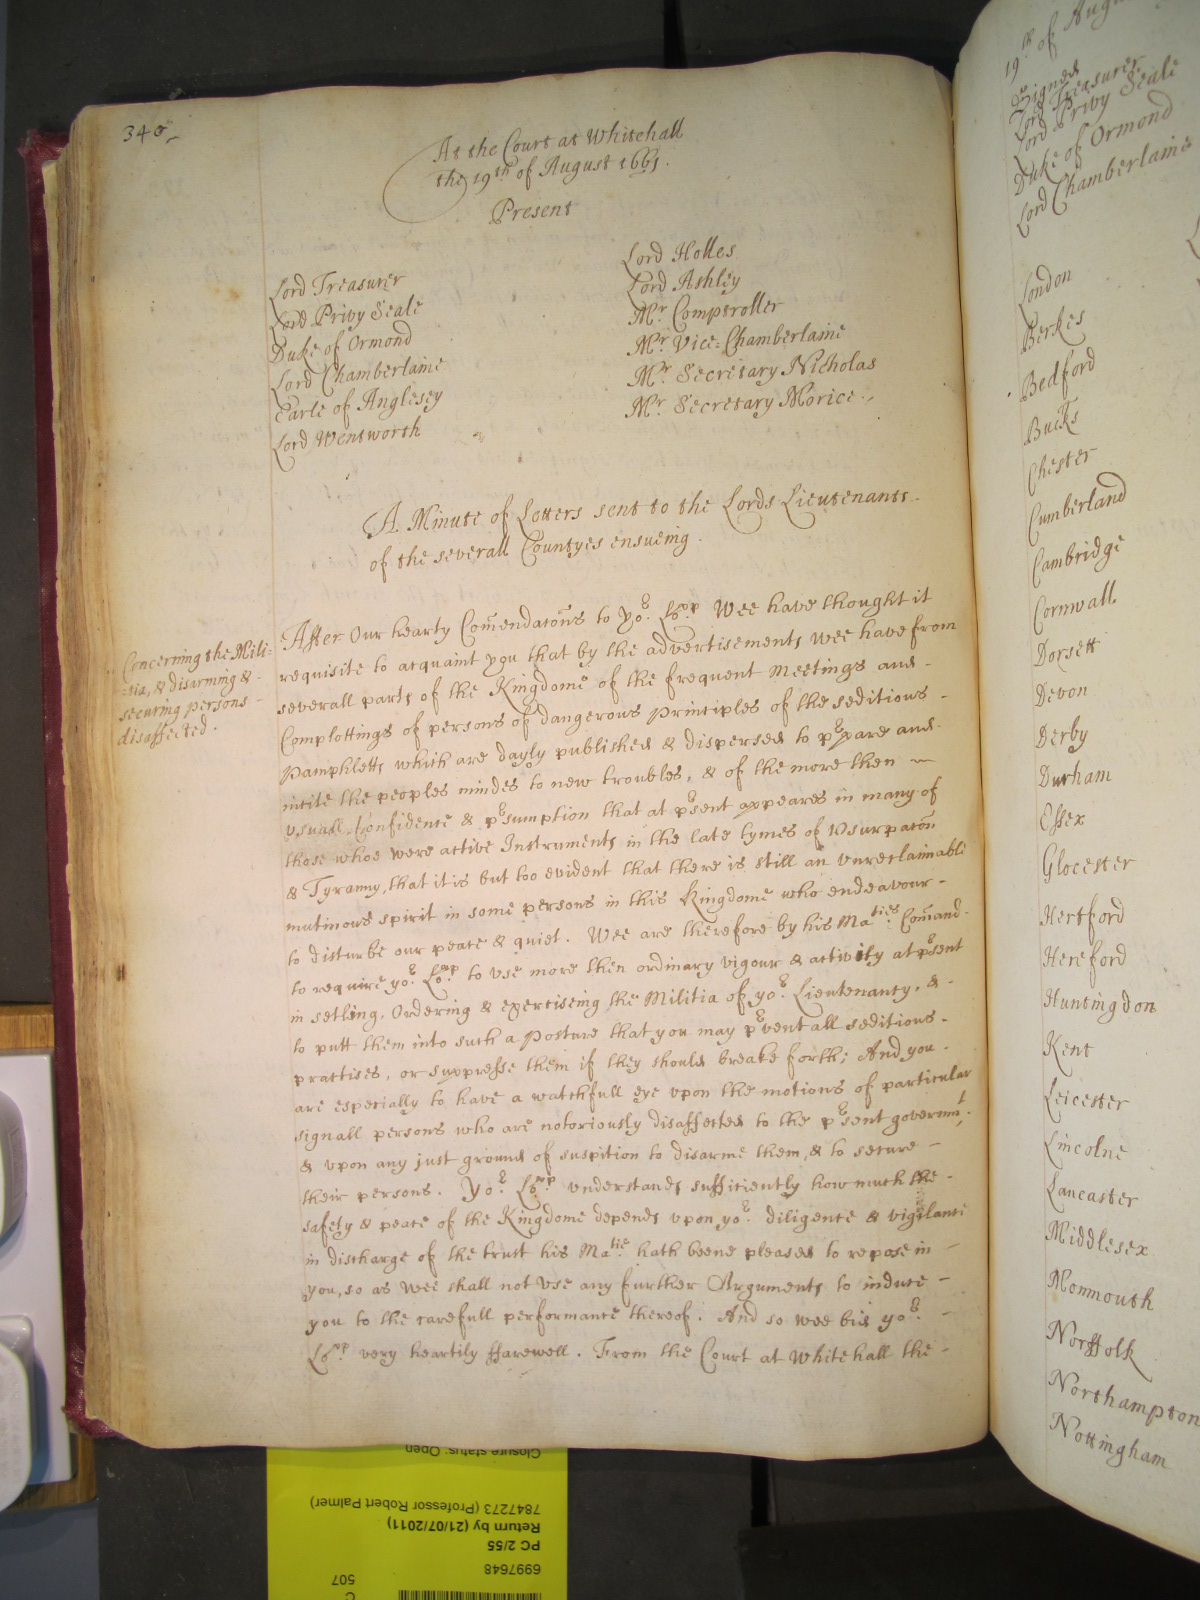 340
At the Court at Whitehall
the 19th of August 1661.
Present
Lord Treasurer
Lord Privy Seale
Duke of Ormond
Lord Chamberlaine
Earle of Anglesey
Lord Wentworth
Lord Holles
Lord Ashley
Mr. Comptroller
Mr. Vice=Chamberlaine
Mr. Secretary Nicholas
Mr. Secretary Morice.
A Minute of Letters sent to the Lords Lieutenants
of the severall Countyes ensueing.
Concerning the Mili=
=tia, & disarming &
securing persons
disaffected.
After Our hearty Com̄endatōns to yor. Lopp. Wee have thought it
requisite to acquaint you that by the advertisements wee have from
severall parts of the Kingdome of the frequent Meetings and
Complottings of persons of dangerous Principles of the seditious
Pamphletts which are dayly published & dispersed to prpare and
incite the peoples mindes to new troubles, & of the more then
usuall Confidence & prsumption that at prsent appeares in many of
those whoe were active Instruments in the late tymes of Usurpatōn
& Tyranny, that it is but too evident that there is still an unreclaimable
mutinous spirit in some persons in this Kingdome who endeavour
to disturbe our peace & quiet. Wee are therefore by his Maties. Com̄and
to require yor. Lopp. to use more then ordinary vigour & activity at prsent
in setling, Ordering & exerciseing the Militia of yor. Lieutenancy, &
to putt them into such a Posture that you may prvent all seditious
practises, or suppresse them if they should breake forth; And you
are especially to have a watchfull eye upon the motions of particular
signall persons who are notoriously disaffected to the prsent governmt.
& upon any just ground of suspition to disarme them, & to secure
their persons. Yor. Lopp. understands sufficiently how much the
safety & peace of the Kingdome depends upon yor. diligence & vigilance
in discharge of the trust his Matie. hath beene pleased to repose in
you, so as wee shall not use any further Arguments to induce
you to the carefull performance thereof. And so wee bid yor.
Lopp. very heartily ffarewell. From the Court at Whitehall the
19th of August
Signed
Lord Treasurer
Lord Privy Seale
Duke of Ormond
Lord Chamberlaine
London
Berkes
Bedford
Bucks
Chester
Cumberland
Cambridge
Cornwall
Dorsett
Devon
Derby
Durham
Essex
Glocester
Hertford
Hereford
Huntingdon
Kent
Leicester
Lincolne
Lancaster
Middlesex
Monmouth
Norffolk
Northampton
Nottingham
Closure status: Open
7847273 (Professor Robert Palmer)
Return by (21/07/2011)
PC 2/55
6997648
507
C